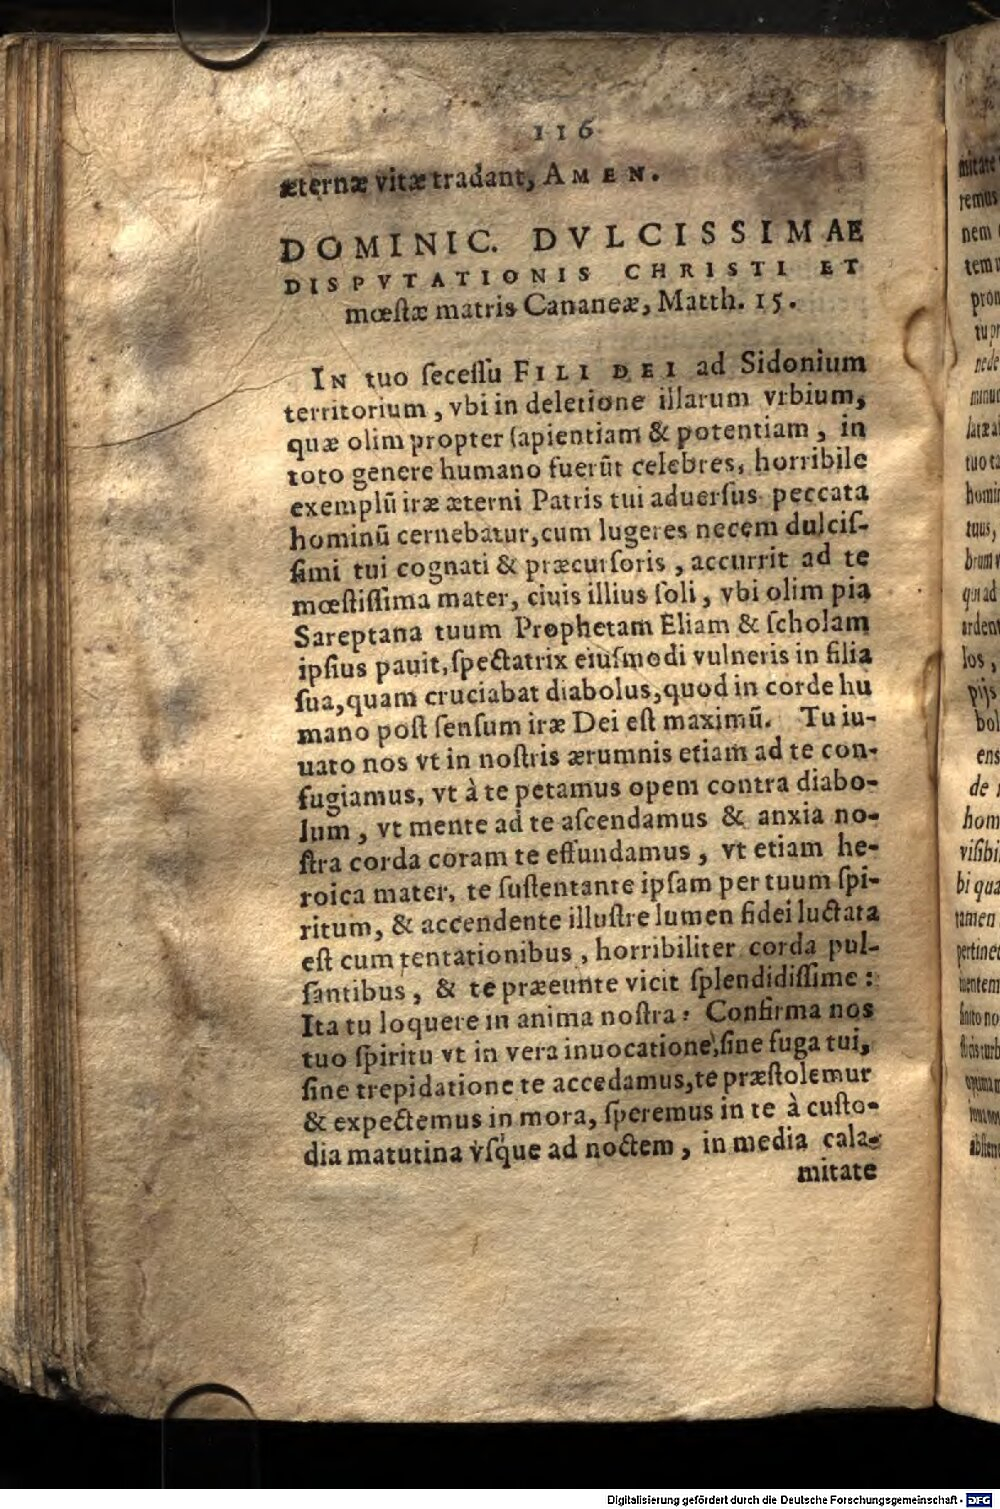 116
æternæ vitæ tradant, AMEN.
DOMINIC. DVLCISSIMAE
DISPVTATIONIS CHRISTI ET
mœſtæ matris Cananeæ, Matth. 15.
IN tuo ſeceſſu FILI DEI ad Sidonium
territorium, vbi in deletione illarum vrbium,
quæ olim propter ſapientiam & potentiam, in
toto genere humano fuerūt celebres, horribile
exemplū iræ æterni Patris tui aduerſus peccata
hominū cernebatur, cum lugeres necem dulciſ-
ſimi tui cognati & præcurſoris, accurrit ad te
mœſtiſſima mater, ciuis illius ſoli, vbi olim pia
Sareptana tuum Prophetam Eliam & ſcholam
ipſius pauit, ſpectatrix eiuſmodi vulneris in filia
ſua, quam cruciabat diabolus, quod in corde hu
mano poſt ſenſum iræ Dei eſt maximū. Tu iu-
uato nos vt in noſtris ærumnis etiam ad te con-
fugiamus, vt à te petamus opem contra diabo-
lum, vt mente ad te aſcendamus & anxia no-
ſtra corda coram te effundamus, vt etiam he-
roica mater, te ſuſtentante ipſam per tuum ſpi-
ritum, & accendente illuſtre lumen fidei luctata
eſt cum tentationibus, horribiliter corda pul-
ſantibus, & te præeunte vicit ſplendidiſſime:
Ita tu loquere in anima noſtra: Confirma nos
tuo ſpiritu vt in vera inuocatione, ſine fuga tui,
ſine trepidatione te accedamus, te præſtolemur
& expectemus in mora, ſperemus in te à cuſto-
dia matutina vſque ad noctem, in media cala-
mitate
Digitalisierung gefördert durch die Deutsche Forschungsgemeinschaft - DFG